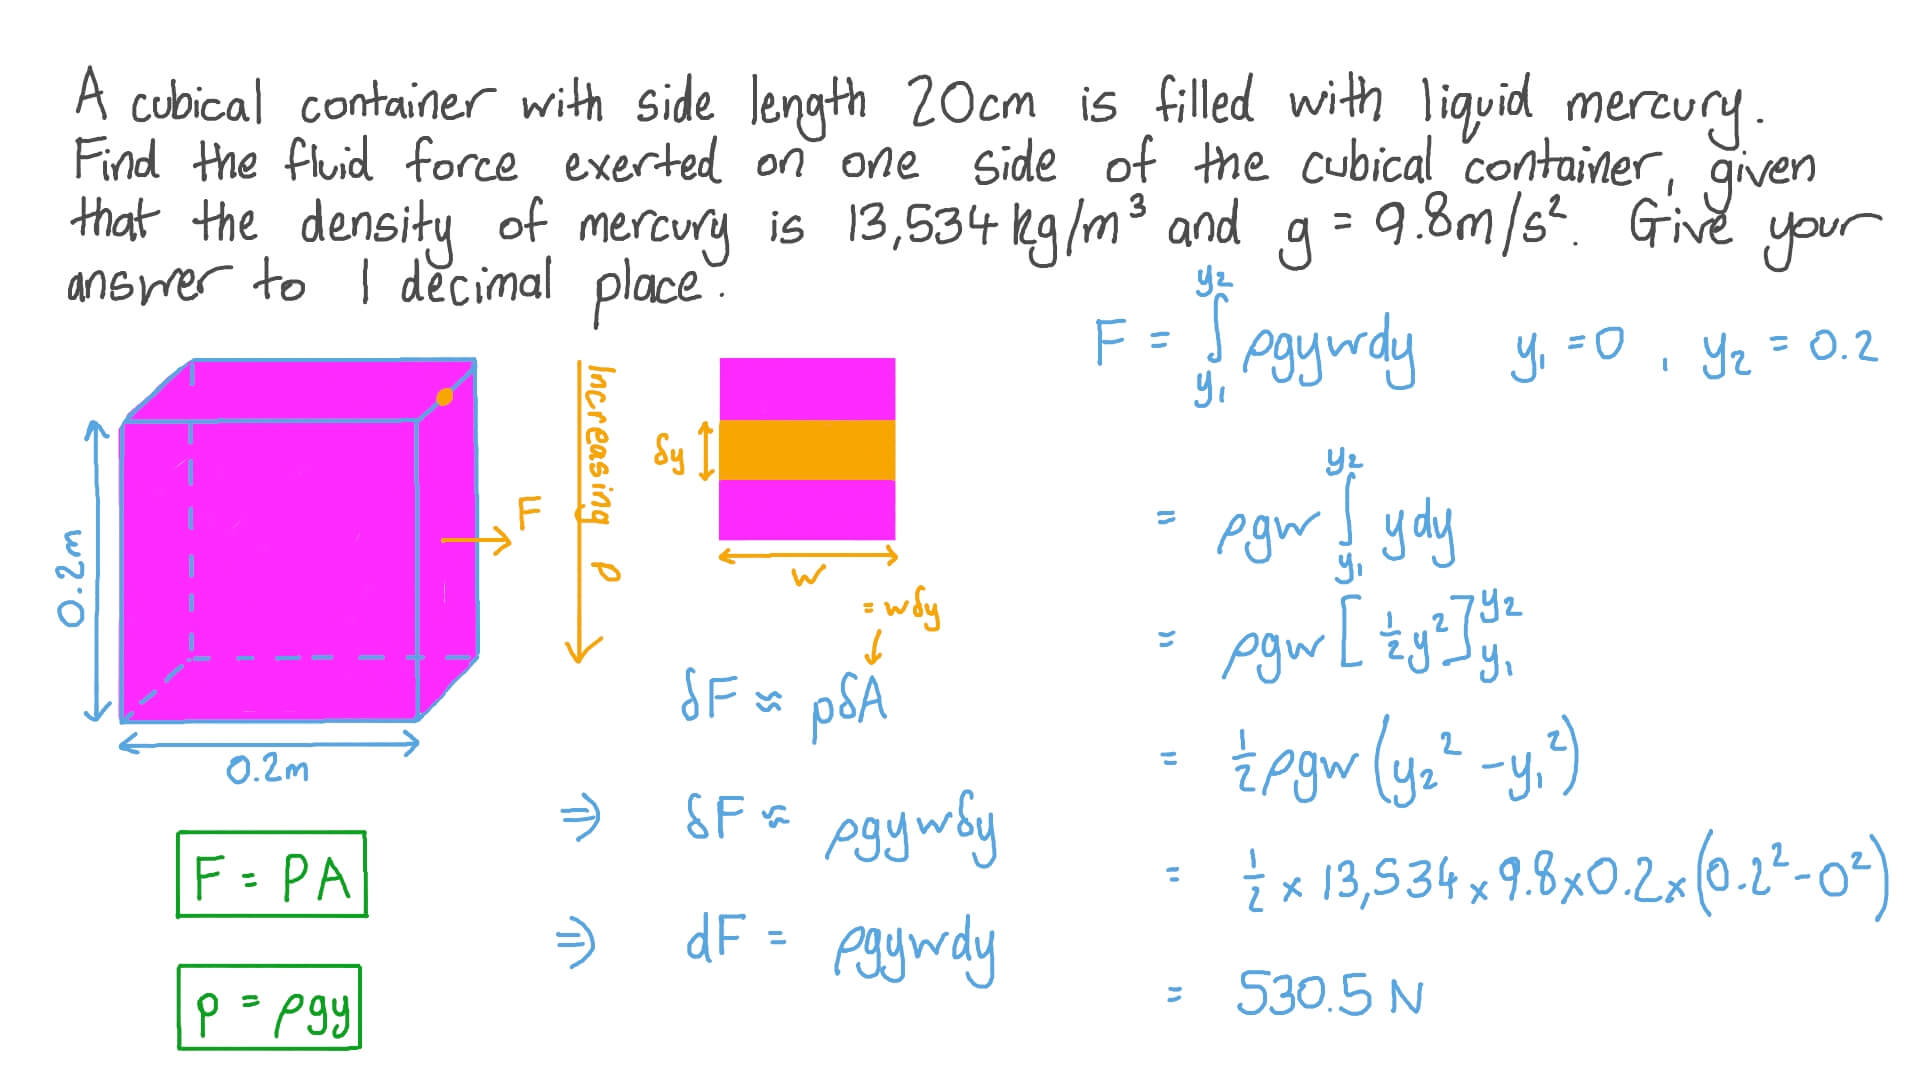 A cubical container with side length 20cm is filled with liquid mercury.
Find the fluid force exerted on one side of the cubical container, given
that the density of mercury is 13,534 kg/m³ and g = 9.8m/s². Give your
answer to 1 decimal place.
0.2m
0.2m
F
Increasing ρ
δy
w
= wδy
δF ≈ pδA
⇒ δF ≈ ρgywδy
⇒ dF = ρgywdy
F = PA
p = ρgy
F = ∫_{y₁}^{y₂} ρgywdy y₁ = 0 , y₂ = 0.2
= ρgw ∫_{y₁}^{y₂} ydy
= ρgw [½y²]_{y₁}^{y₂}
= ½ρgw(y₂² - y₁²)
= ½ × 13,534 × 9.8 × 0.2 × (0.2² - 0²)
= 530.5 N